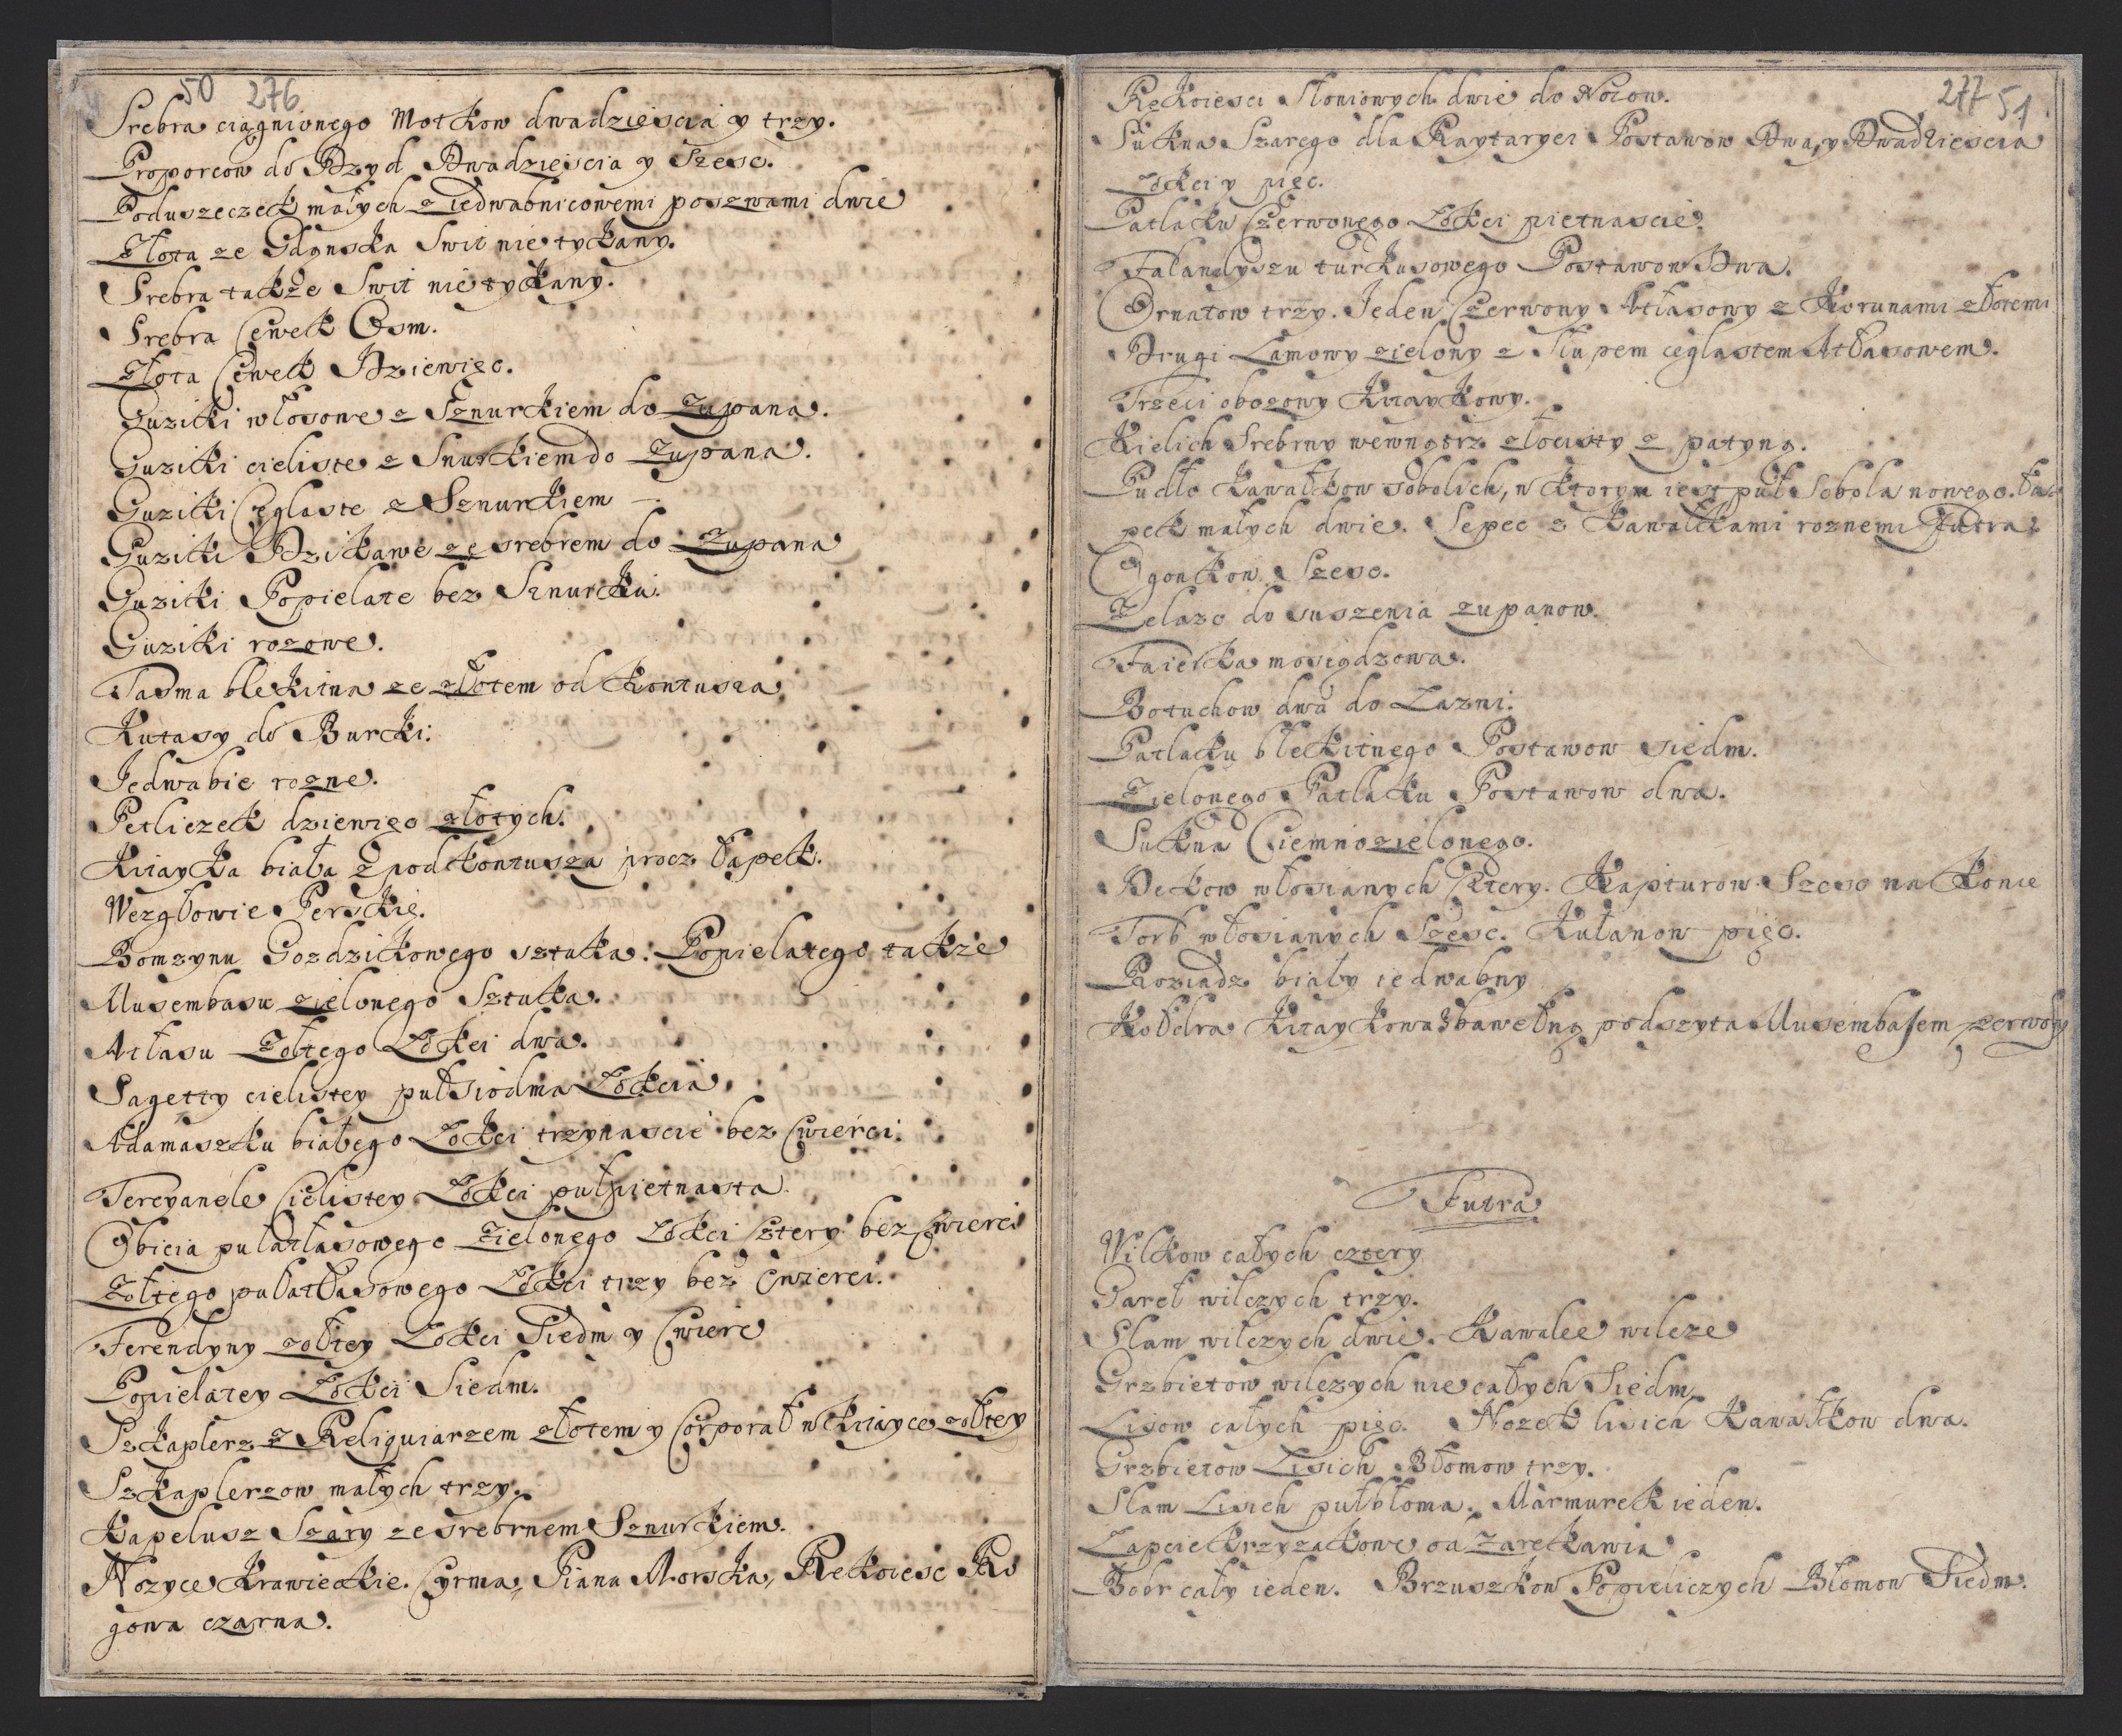 50 276
Srebra ciągnionego Motkow dwadziescia y trzy.
Proporcow do Dzyd Dwadziescia y Szesc.
Poduszeczek małych z Iedwabnicowemi poszwami dwie
Złota ze Gdanska Swit nie tykany.
Srebra takze Swit nie tykany.
Srebra Cewek Osm.
Złota Cewek Dziewięc.
Guziki włosowe z Sznurkiem do Zupana.
Guziki cieliste z Snurkiem do Zupana.
Guziki Ceglaste z Sznurkiem
Guziki Dzikawe ze srebrem do Zupana
Guziki Popielate bez Sznurku.
Guziki rozowe.
Tasma błekitna ze złotem od Kontusza
Kutasy do Burki.
Jedwabie rozne.
Petliczek dziewięc złotych.
Kitayka biała z pod kontusza procz łapek.
Wezgłowie Perskie.
Bomzynu Gozdzikowego sztuka. Popielatego takze
Musembasu zielonego Sztuka.
Atłasu Zołtego Łokci dwa.
Sagetty cielistey pułsiodma Łokcia
Adamaszku białego Łokci trzynascie bez Cwierci.
Tereyanele Cielistey Łokci pułpietnasta
Obicia pułatłasowego Zielonego Łokci Cztery bez Cwierci
Zołtego pułatłasowego Łokci trzy bez Cwierci.
Ferendyny zołtey Łokci Siedm y Cwierc
Popielatey Łokci Siedm.
Szkaplerz z Reliquiarzem złotem y Corporał w Kitayce zołtey
Szkaplerzow małych trzy.
Kapelusz Szary ze srebrnem Sznurkiem.
Nozyce Krawieckie. Cyrma, Piana Morska, Rekoiesc Ro
gowa czarna.
277 51
Rękoiesci Słoniowych dwie do Nozow.
Sukna Szarego dla Raytaryei Postawow Dwa, y Dwadziescia
Łokci y pięc.
Patlaku Czerwonego Łokci pietnascie.
Falandyszu turkusowego Postawow Dwa.
Ornatow trzy. Jeden Czerwony Atłasowy z Korunami złotemi
Drugi Lamowy zielony z Słupem ceglastem Atłasowem.
Trzeci obozowy Kitaykowy.
Kielich Srebrny wewnątrz złocisty z patyną.
Pudło Kawałkow sobolich, w ktorym iest puł Sobola nowego. Ła
pek małych dwie. Sepec z Kawałkami roznemi Futra.
Ogonkow Szesc.
Zelazo do suszenia zupanow.
Faierka mosiędzowa.
Botuchow dwa do Łazni.
Patlaku błekitnego Postawow siedm.
Zielonego Patlaku Postawow dwa.
Sukna Ciemnozielonego.
Dekow włosianych Cztery. Kapturow Szesc na Konie
Torb włosianych Szesc. Kułanow pięc.
Roziadz biały iedwabny
Kołdra Kitaykowa z bawełną podszyta Musembasem czerwony
Futra
Wilkow całych cztery
Gareł wilczych trzy.
Slam wilczych dwie. Kawalce wilcze
Grzbietow wilczych nie całych Siedm
Lisow całych pięc. Nozek lisich Kawałkow dwa.
Grzbietow Lisich Błomow trzy.
Slam Lisich pułbłoma. Marmurek ieden.
Łapcie krzyzakowe od zarekawia
Bobr cały ieden. Brzuszkow Popieliczych Błomow Siedm.